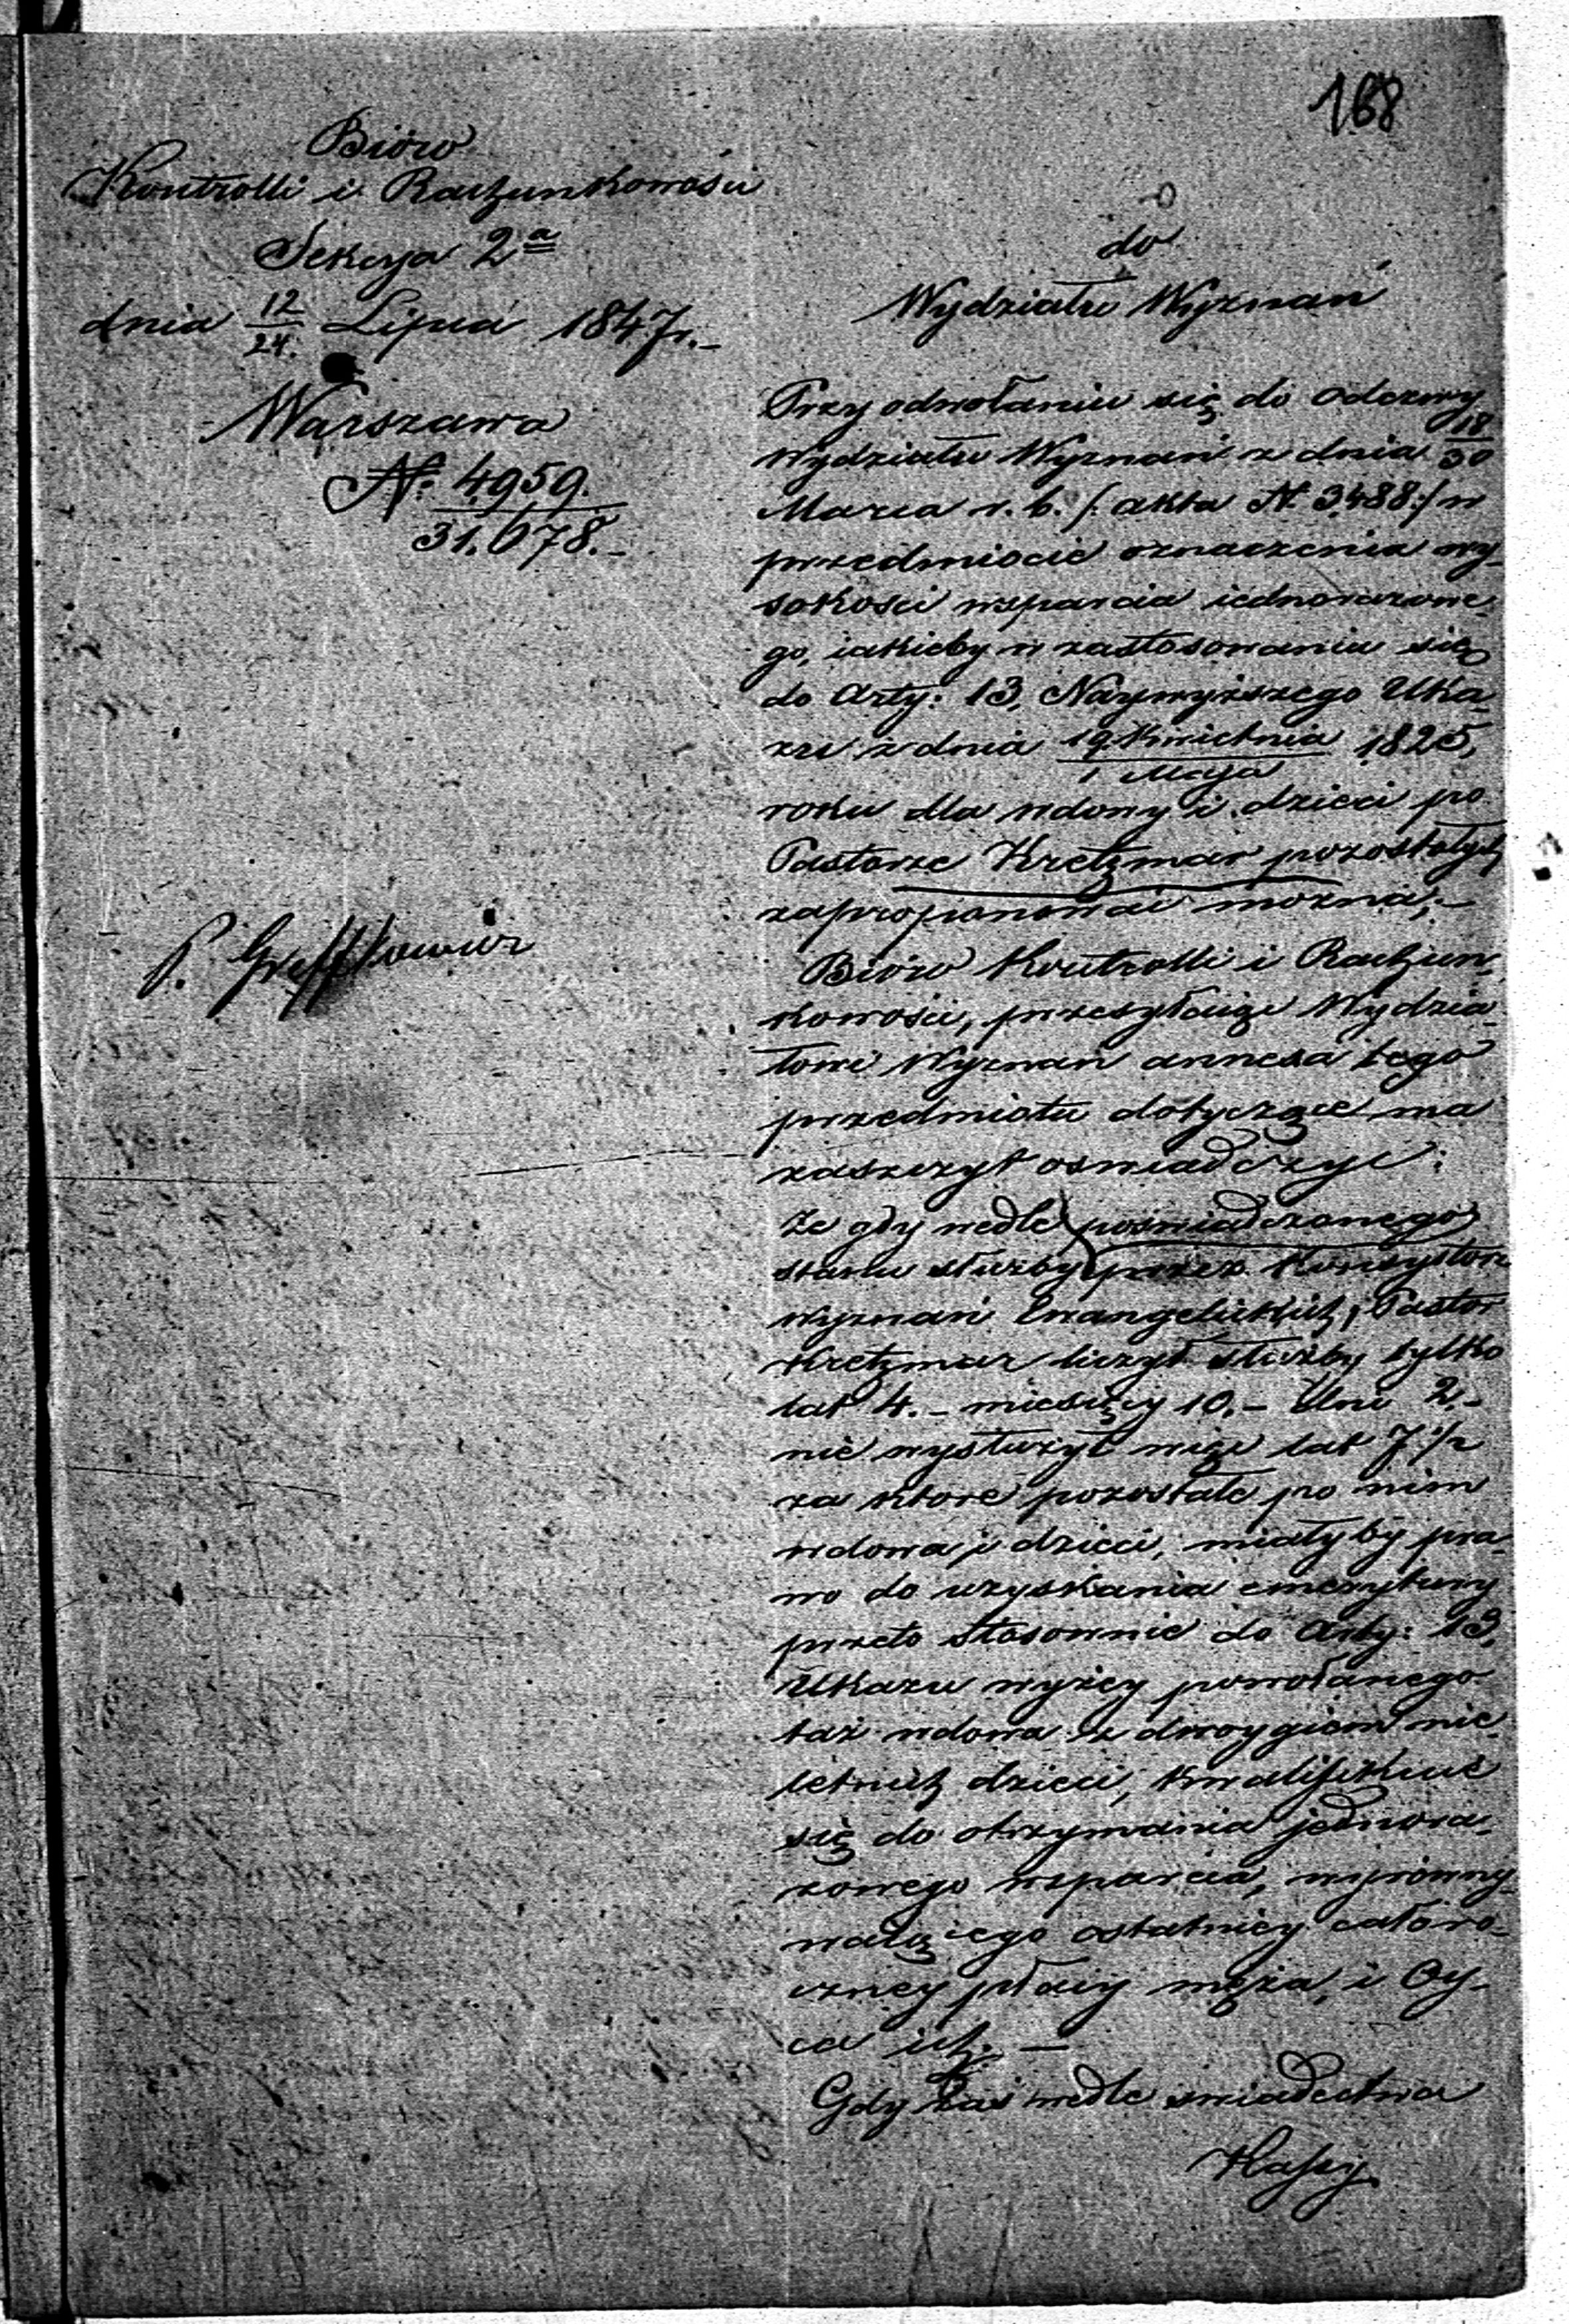 168
Bióro
Kontrolli i Rachunkowości
Sekcya 2a
dnia 12/24. Lipca 1847r.-
Warszawa
N. 4959.
31,678.-
do
Wydziału Wyznań
Przy odwołaniu się do Odezwy
Wydziału Wyznań z dnia 18/30
Marca r. b. /: akta N. 3,488:/ w
przedmiocie oznaczenia wy-
sokości wsparcia iednorazowe-
go, iakieby w zastosowaniu się
do Arty: 13, Naywyższego Uka-
zu z dnia 19. Kwietnia / 1 Maja 1825,
roku dla wdowy i dzieci po
Pastorze Kretzmar pozostałych
zaproponować można;-
Bióro Kontrolli i Rachun-
kowości, przesyłaiąc Wydzia-
łowi Wyznań annexa tego
przedmiotu dotyczące ma
zaszczyt oswiadczyć:
Że gdy wedle poświadczonego
stanu służby przez Konsystorz
wyznań Ewangelickich, Pastor
Kretzmar liczył służby tylko
lat 4.- miesięcy 10.- dni 2.-
nie wysłużył więc lat 7 1/2
za które pozostałe po nim
wdowa i dzieci, miałyby pra-
wo do uzyskania emerytury
przeto stosownie do Arty: 13,
Ukazu wyżey powołanego
taż wdowa z dwoygiem nie-
letnich dzieci, kwalifikuie
się do otrzymania jednora-
zowego wsparcia, wyrówny-
waiącego ostatniey całoro-
czney płacy męża, i Oy-
ca ich.-
Gdy zaś wedle swiadectwa
Kassy